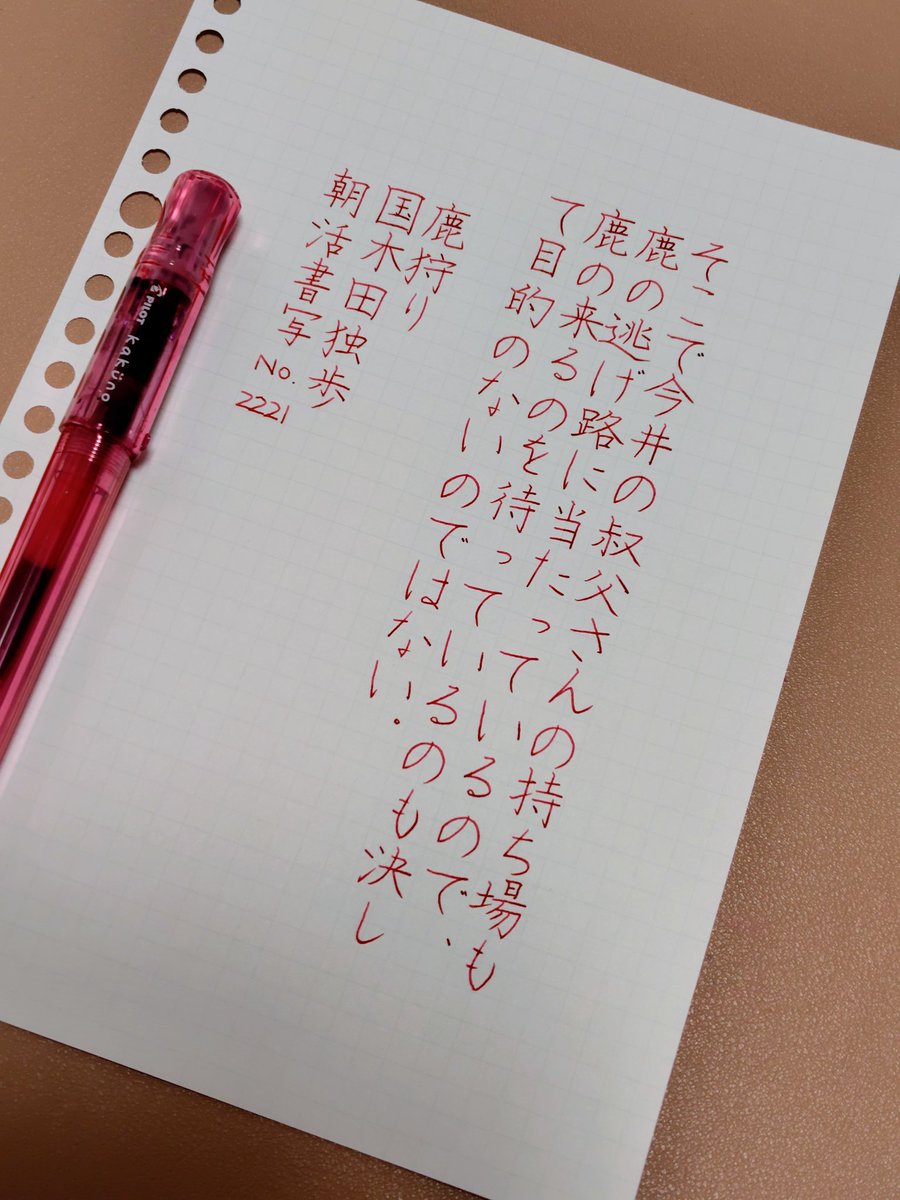 そこで今井の叔父さんの持ち場も
鹿の逃げ路に当たっているので、
鹿の来るのを待っているのも決し
て目的のないのではない.
鹿狩り
国木田独歩
朝活書写
No.
2221
PILOT kaküno